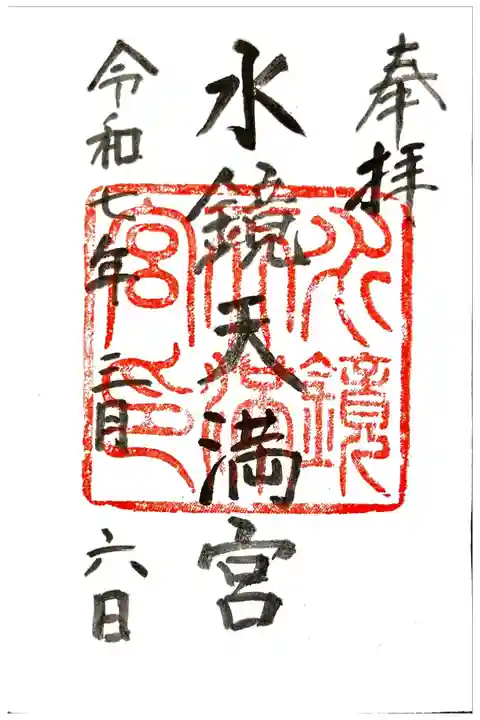 奉拝
水鏡天満宮
令和七年三月六日
水鏡
天満
宮印